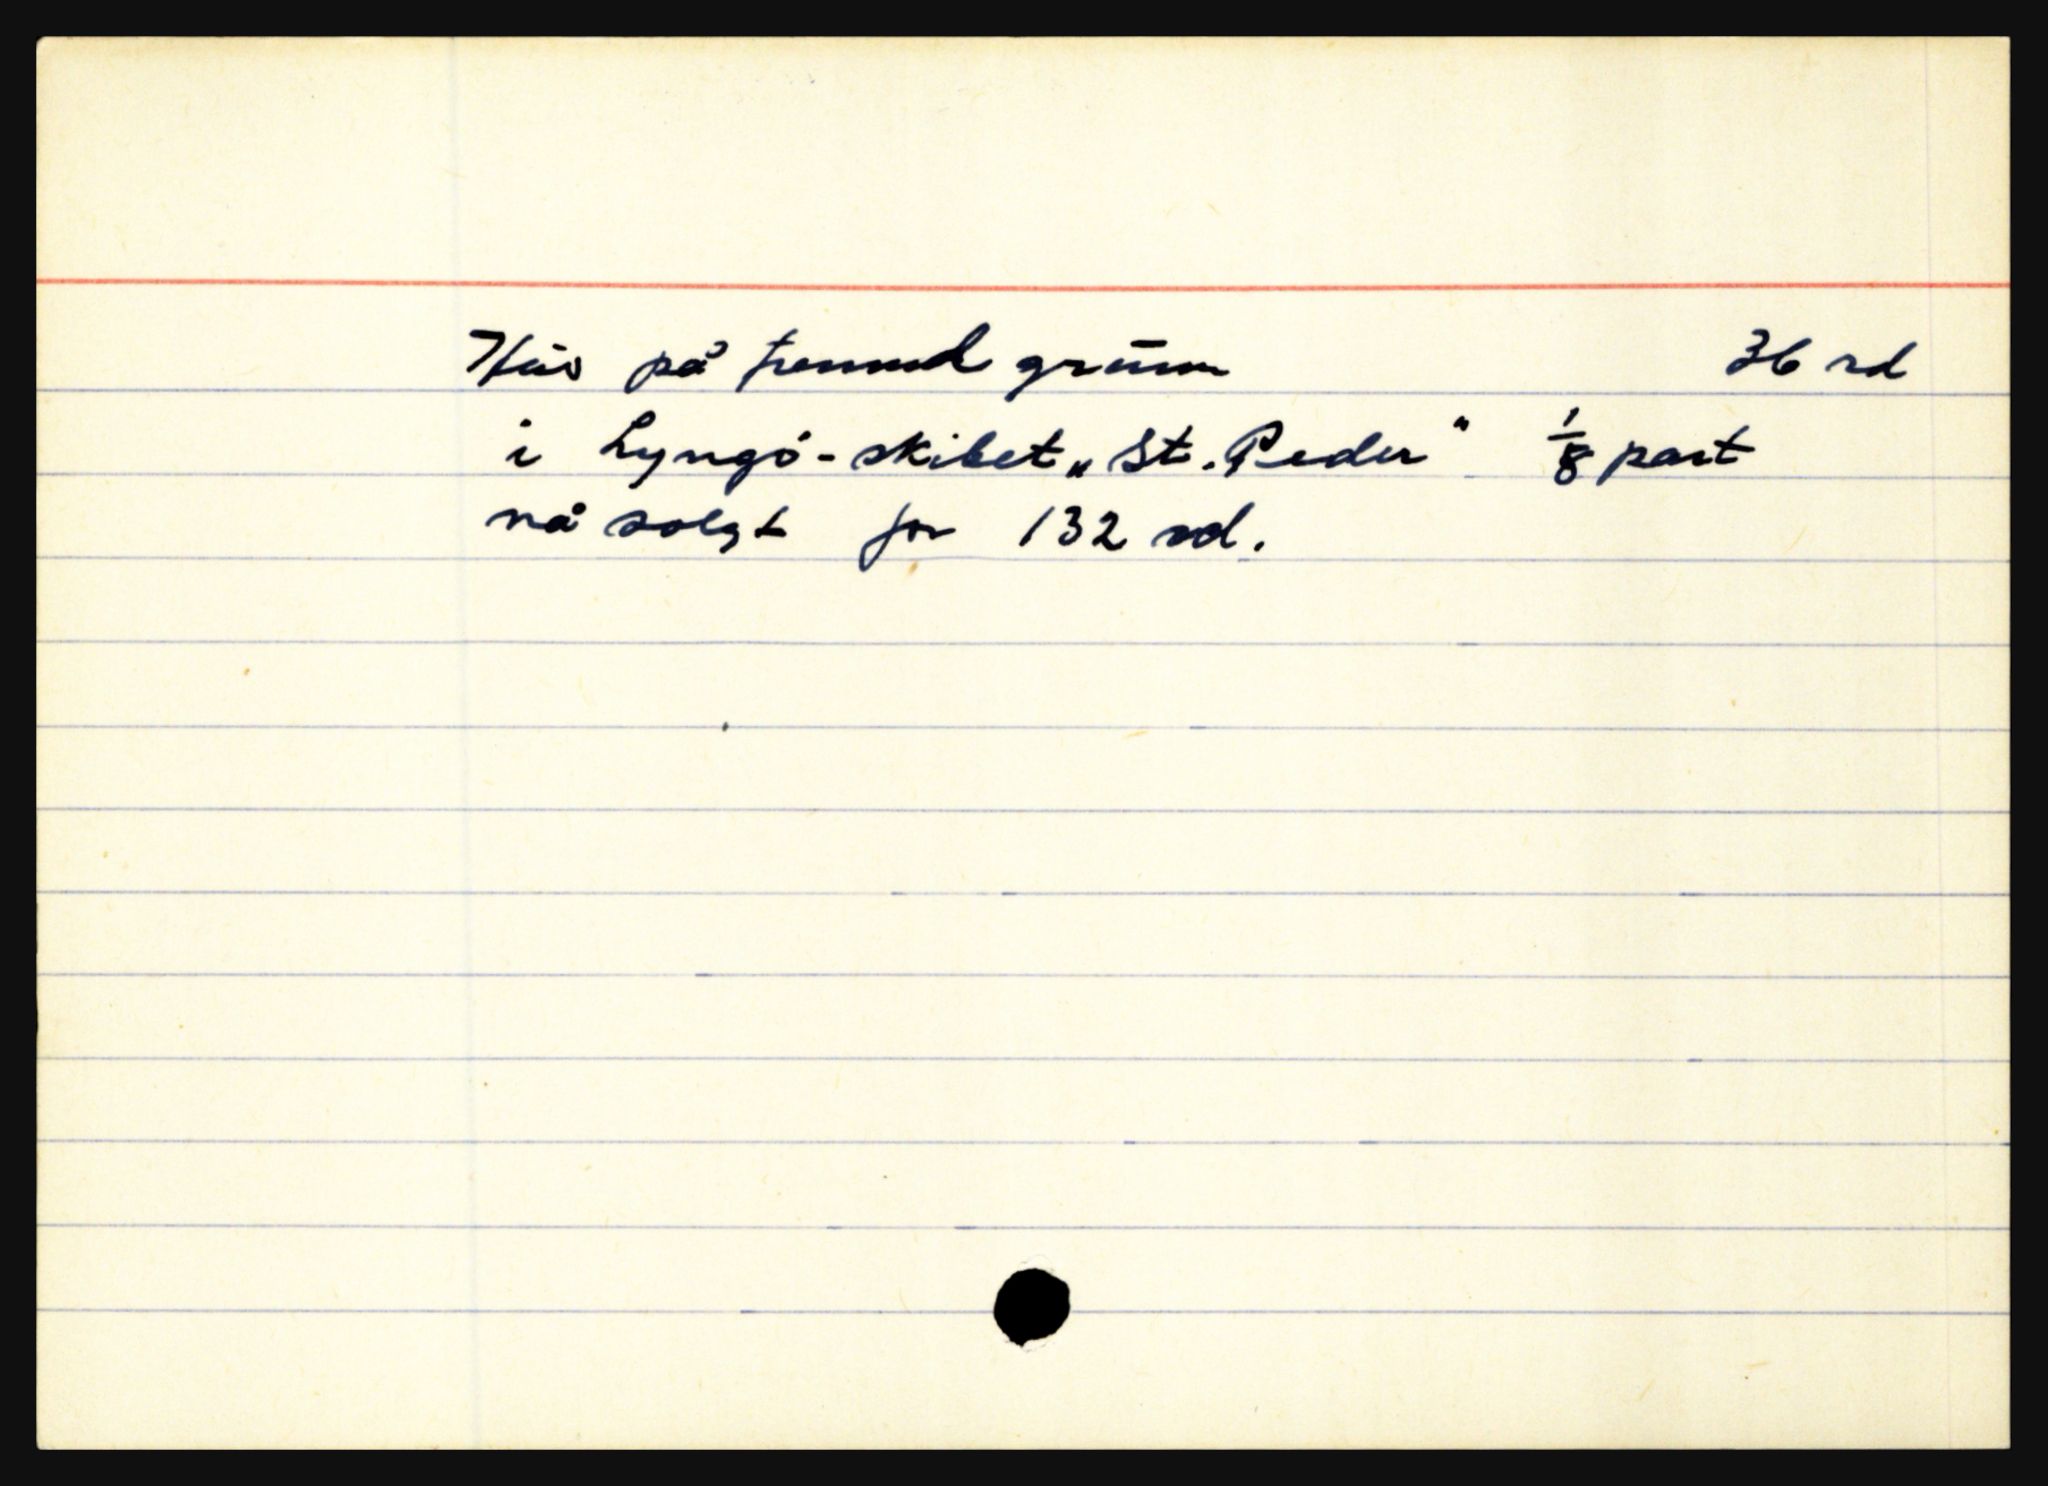 Hūs på fremmed grūnn 36 rd
i Lyngö-skibet „St. Peder" 1/8 part
nå solgt for 132 rd.